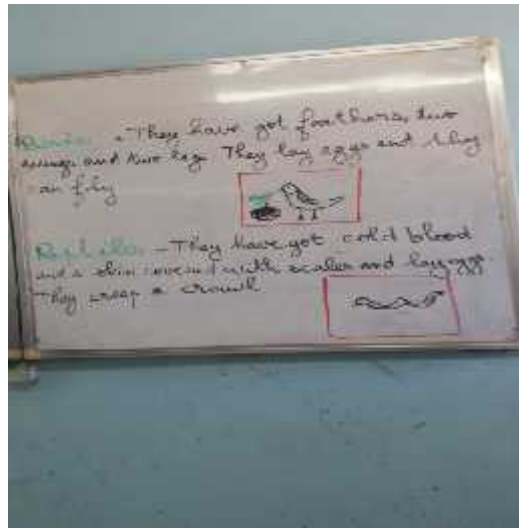 Birds - They have got feathers, two
wings and two legs They lay eggs and they
can fly
Reptiles - They have got cold blood
and a skin covered with scales and lay eggs.
They creep a crawl